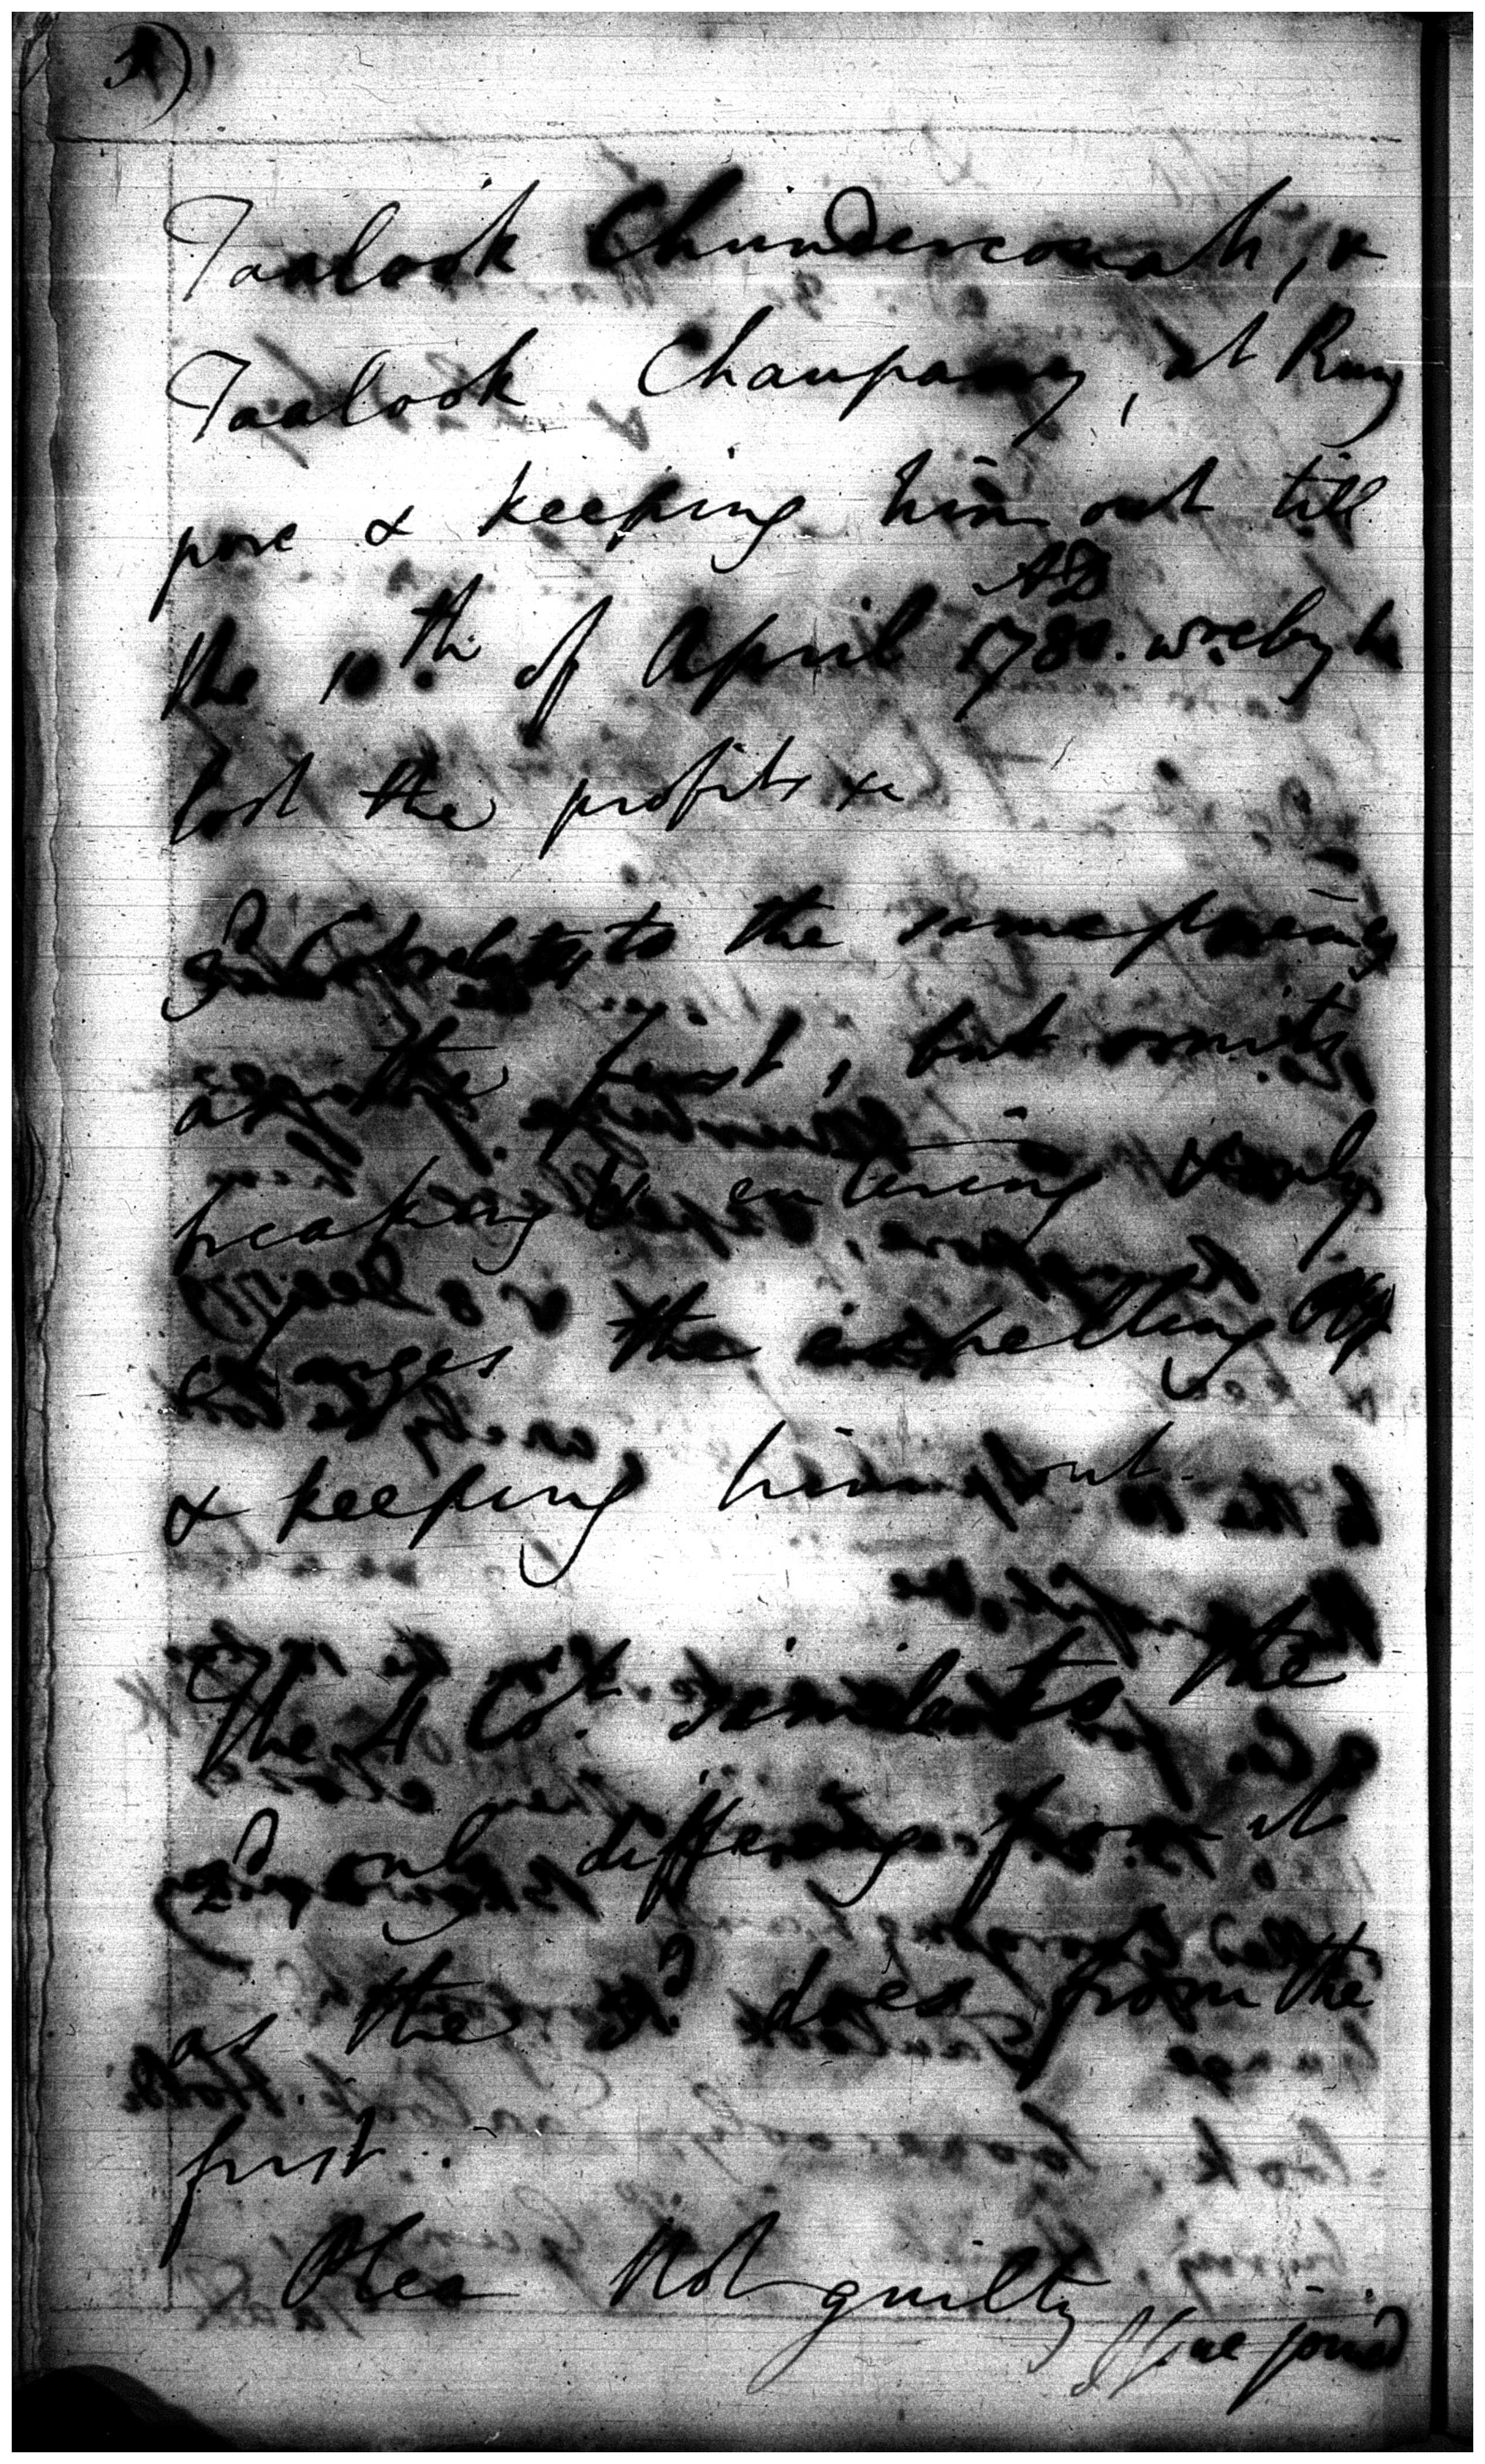 Taalook Chundercona h, &
Taalook Chaupamy, at Rung
pore & keeping him out till
AD
the 10th of April 1780. wreby he
lost the profits &c
3d Ct relates to the same premes
as the first, but omits
breaking & entering & only
charges the expelling Plf
& keeping him out.
The 4 Cot. similar to the
2d only differing from it
as the 3d does from the
first.
Plea Not guilty
Issue joined